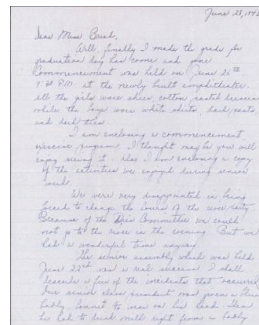 June 28, 1942
Dear Miss Breed,
Well, finally I made the grade for
graduation day has come and gone.
Commencement was held on June 26th
at P.M. at the newly built amphitheater.
All the girls wore sheer cotton pastel dresses
while the boys wore white shirts, dark pants,
and dark ties.
I am enclosing a commencement
exercise program. I thought maybe you will
enjoy seeing it. Also I am enclosing a copy
of the activities we enjoyed during senior
week.
We were very disappointed in being
forced to change the hours of the
Because of the Committee we could
not go to the river in the evening. But we
had a wonderful time anyway.
The senior assembly which was held
June 22nd was a real success. I shall
describe a few of the incidents that occurred.
Our senior class president was posed as
baby bonnet to wear on his head. Then
he had to drink milk right from a baby